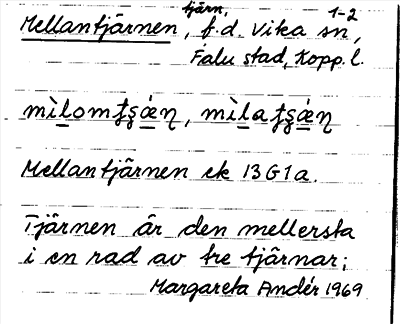 tjärn, 1-2
Mellantjärnen, f.d. Vika sn,
Falu stad, Kopp. l.
Mellantjärnen ek 13G1a.
Tjärnen är den mellersta
i en rad av tre tjärnar;
Margareta Andér 1969